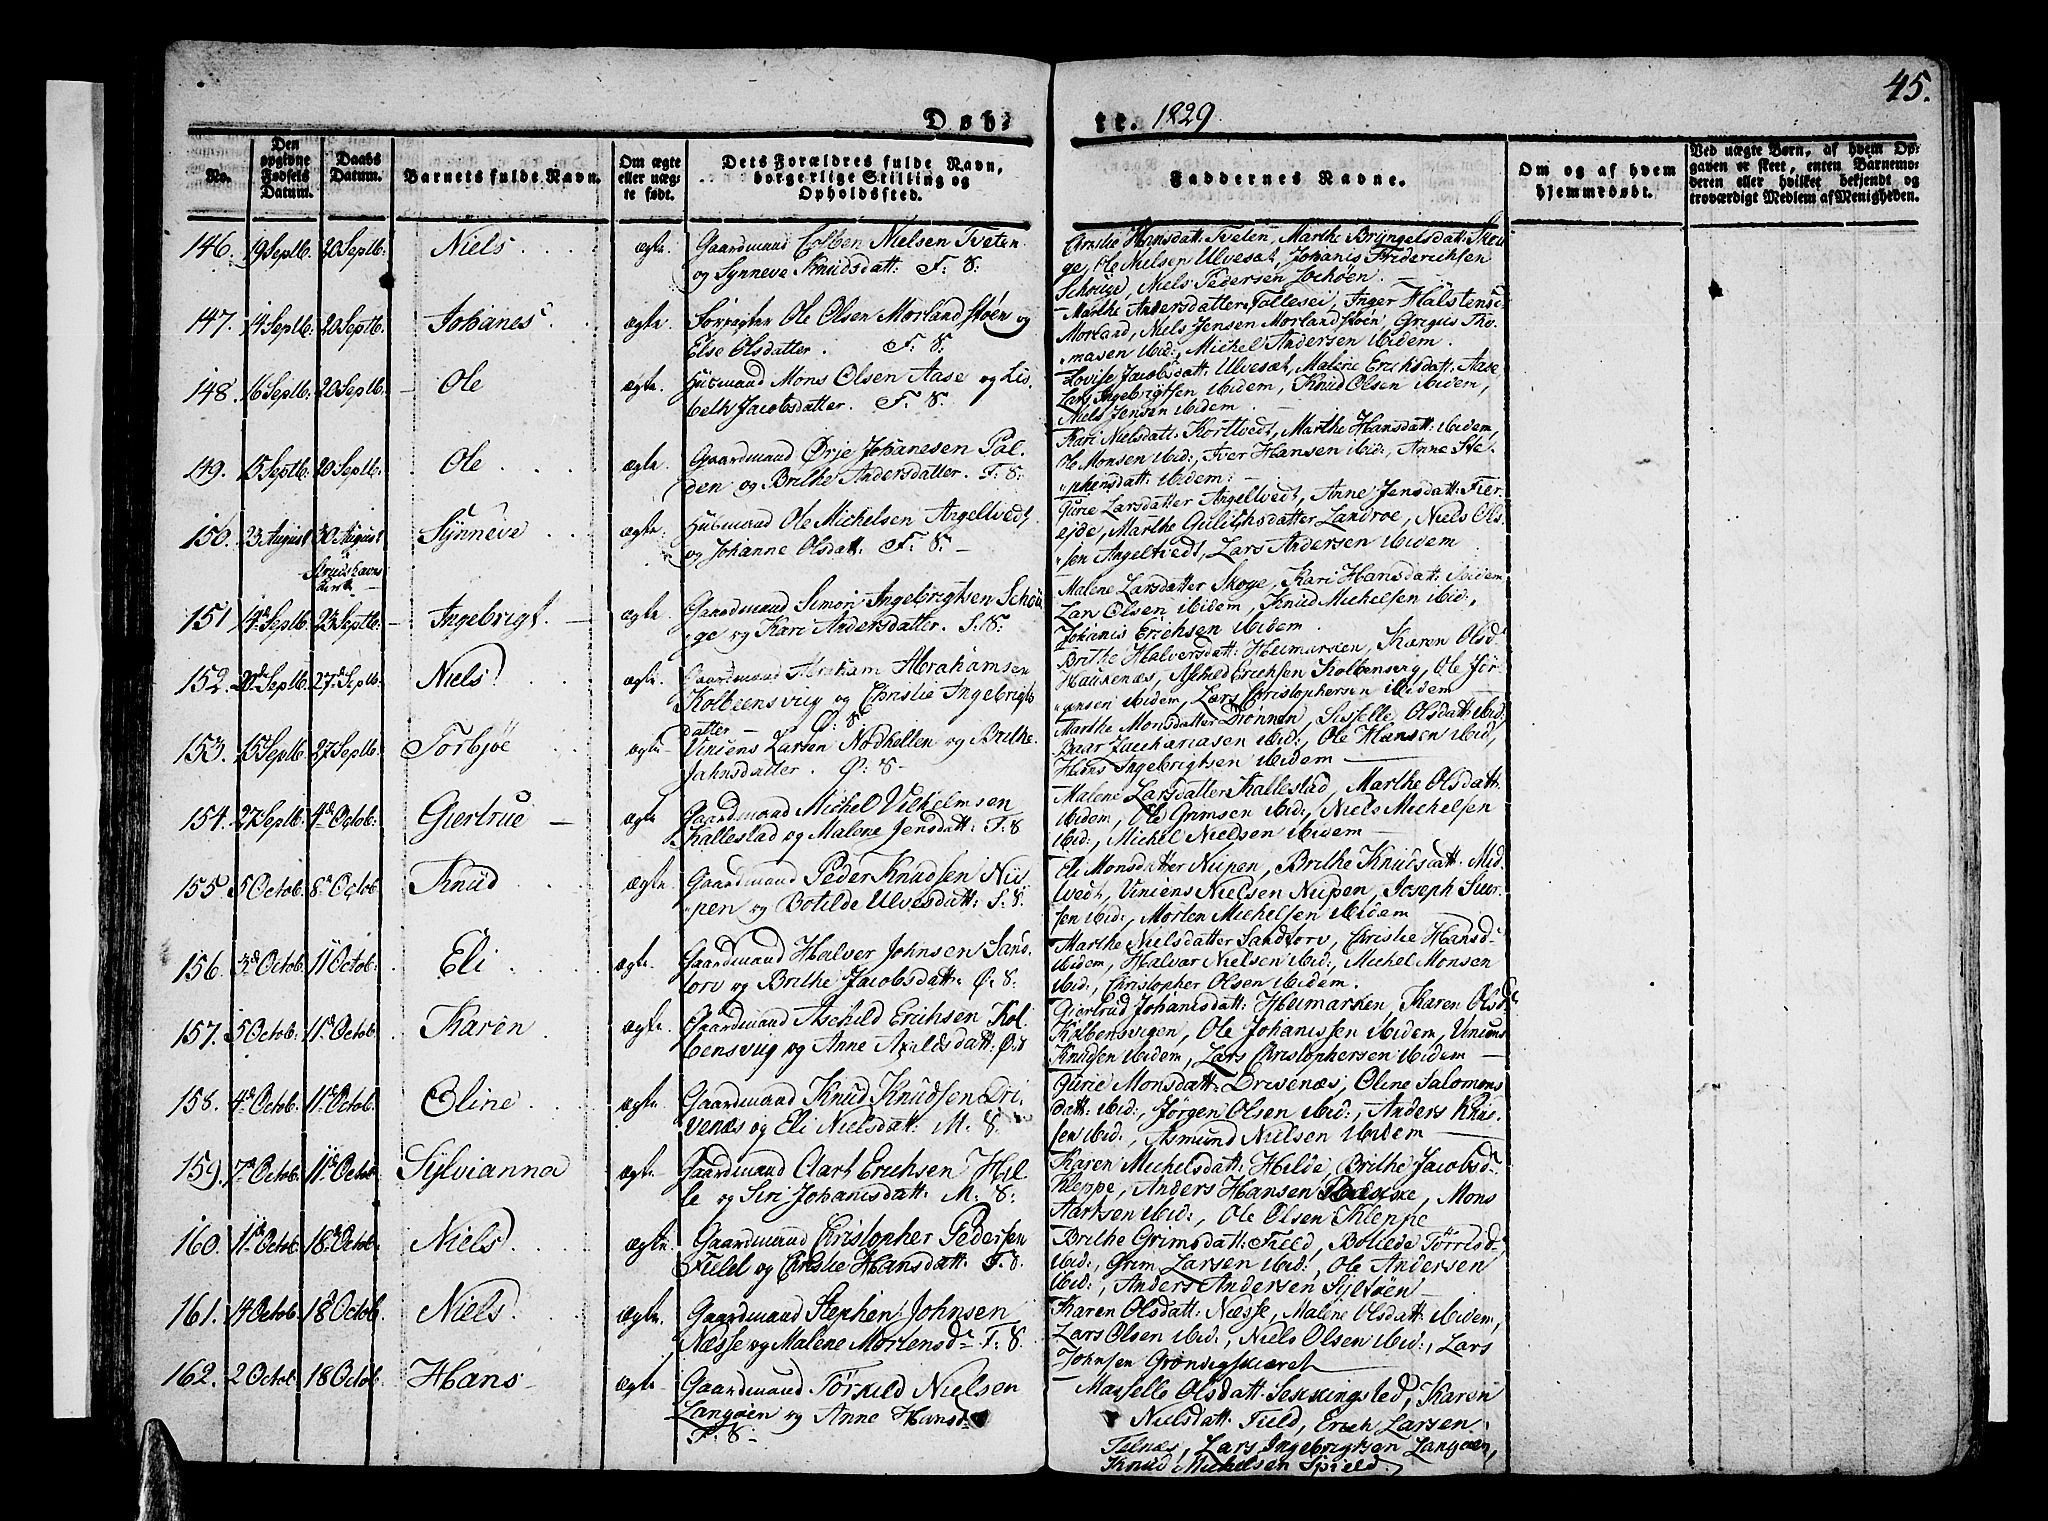 45.
Døb- te. 1829.
No.
Den opgivne Fødsels Datum.
Daabs Datum.
Barnets fulde Navn.
Om ægte eller uægte født.
Dets Forældres fulde Navn, borgerlige Stilling og Opholdssted.
Faddernes Navne.
Om og af hvem hjemmedøbt.
Ved uægte Børn, af hvem Opgaven er skeet, enten Barnemoderen eller hvilket bekjendt og troværdigt Medlem af Menigheden.
146. 19 Septb: 20 Septb: Niels ægte.
Gaardmand Colben Nielsen Tveten
og Synneve Knudsdatt: F: S:
Hansdatt: Tveten, Marthe Bryngelsdatt: Skou
ge, Ole Nielsen Ulvesæt, Johanis Friderichsen
Schouge, Niels Pedersen
147. 14 Septb: 20 Septb: Johanes ægte.
Forpagter Ole Olsen Morlandstøen og
Else Olsdatter. F: S:
Marthe Andersdatter Inger Halstensd
Morland, Niels Jensen Morlandstøen, Gregus Tho-
masen ibid:, Michel Andersen ibidem.
148. 16 Septb: 20 Septb: Ole ægte.
Huusmand Mons Olsen Aase og Lis
beth Jacobsdatter. F: S.
Lovise Jacobsdatt: Ulvesæt, Malene Erichsdatt: Aase
Lars Ingebrigtsen ibidem, Knud Olsen ibidem,
Niels Jensen ibidem.
149. 15 Septb: 20 Septb: Ole ægte.
Gaardmand Ørje Johanesen Pol-
den og Brithe Andersdatter. F: S:
Kari Nielsdatt: Kortvedt, Marthe Hansdatt: ibidem,
Ole Monsen ibid:, Iver Hansen ibid:, Anne Ste-
phensdatt: ibidem:
150. 23 August 30 August Synneve ægte.
Huusmand Ole Michelsen Angeltvedt
og Johanne Olsdatt: F: S:
Gurie Larsdatter Angeltvedt, Anne Jensdatt:
Marthe Landroe, Niels Ols-
sen Angeltvedt, Lars Andersen ibidem
151 14de Septb 23 Septb: Ingebrigt ægte.
Gaardmand Simon Ingebrigtsen Schou
ge og Kari Andersdatter. S: S:
Malene Larsdatter Skoge, Kari Hansdatt: ibidem
Olsen ibidem, Knud Michelsen ibid:,
Johanis Erichsen ibidem.
152. 20de Septb: 27de Septb Niels ægte.
Gaardmand Abraham Abrahamsen
Kolbeensvig og Christie Ingebrigts
datter Ø: S.
Brithe Halversdatt: Heimarken, Karen Olsd
Haukenæs, Askild Erichsen Kolbensvig, Ole Jør-
gensen ibidem, Lars Christophersen ibidem
153. 15 Septb 27 Septb. Torbjøe ægte
Viniens Larsen Nodhelten og Brithe
Jahnsdatter. Ø: S.
Marthe Monsdatter Drønnen, Sisselle Olsdatt: ibid,
Baar Zachariasen ibid:, Ole Hansen ibid,
Hans Ingebrigtsen ibidem
154. 27 Septb 4de Octob: Giertrue ægte
Gaardmand Michel Vilhelmsen
Kallestad og Malene Jensdatt: F: S
Malene Larsdatter Kallestad, Marthe Olsdatt:
ibidem, Ole Grimsen ibid:, Niels Michelsen
ibid:, Michel Nielsen ibidem
155 5 Octob. 8de Octob Knud ægte.
Gaardmand Peder Knudsen Nu-
pen og Botilde Ulvesdatt: S: S.
Eli Monsdatter Nupen, Brithe Knudsdatt: Mid
tvedt, Viniens Nielsen Nupen, Joseph Siur-
sen ibid:, Morten Michelsen ibidem
156. 3de Octob. 11 Octob. Eli ægte.
Gaardmand Halver Johnsen Sand
torv og Brithe Jacobsdatt: Ø: S.
Marthe Nielsdatter Sandtorv, Christie Hansd
ibidem, Halvar Nielsen ibid:, Michel Monsen
ibid:, Christopher Olsen ibidem.
157. 5 Octob: 11de Octob. Karen ægte.
Gaardmand Aschild Erichsen Kol-
bensvig og Anne Axeldsdatt: Ø: S
Giertrud Johanisdatt: Heimarken, Karen Olsd
Kolbensvigen, Ole Johanissen ibidem, Viniens
Knudsen ibidem, Lars Christophersen ibidem
158. 4de Octob. 11de Octob. Eline ægte.
Gaardmand Knud Knudsen Dri-
venæs og Eli Nielsdatt: M. S.
Gurie Monsdatt: Drivenæs, Oline Salomons
datt: ibid:, Jørgen Olsen ibid:, Anders Knud-
sen ibid:, Asmund Nielsen ibidem
159. 7de Octob. 11de Octob Sylvianna ægte
Gaardmand Olart Erichsen Hil-
le og Siri Johanisdatt: M. S:
Karen Michelsdatt: Hilde, Brithe Jacobsd
Kleppe, Anders Hansen Mons
ibid:, Ole Olsen Kleppe
160. 11de Octob 18de Octob. Niels ægte
Gaardmand Christopher Pedersen
Field og Christie Hansdatt: F. S.
Brithe Grimsdatt: Field, Botilde Tørrisd
ibid:, Grim Larsen ibid:, Ole Andersen
ibid:, Anders Andersen Syltøen
161. 14 Octob 18 Octob. Niels. ægte.
Gaardmand Stephen Johnsen
Næsse og Malene Mortensd F: S.
Karen Olsdatt: Næsse, Malene Olsdatt: ibidem,
Lars Olsen ibid:, Niels Olsen ibid:, Lars
Johnsen Grøndigskiæret
162. 2 Octob. 18 Octob. Hans ægte
Gaardmand Tørkild Nielsen
Langøen og Anne Hansd
F: S:
Marselle Olsdatt: Sekkingsted, Karen
Nielsdatt: Field, Erich Larsen
Telnæs, Lars Ingebrigtsen Langøen,
Knud Michelsen Spield